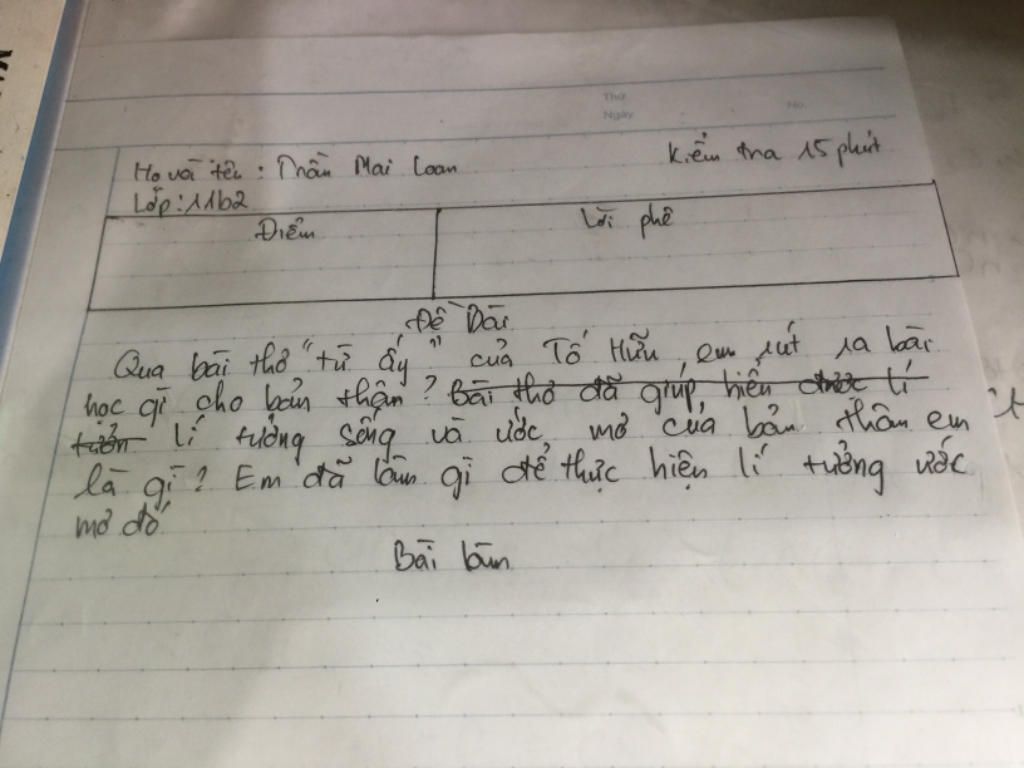 Thứ
Ngày
No.
Họ và tên : Trần Mai Loan
Kiểm tra 15 phút
Lớp : 11b2
Điểm
Lời phê
Đề Bài
Qua bài thơ "từ ấy" của Tố Hữu em rút ra bài
học gì cho bản thân? Bài thơ đã giúp hiểu được lí
tưởn lí tưởng sống và ước mơ của bản thân em
là gì? Em đã làm gì để thực hiện lí tưởng ước
mơ đó
Bài làm